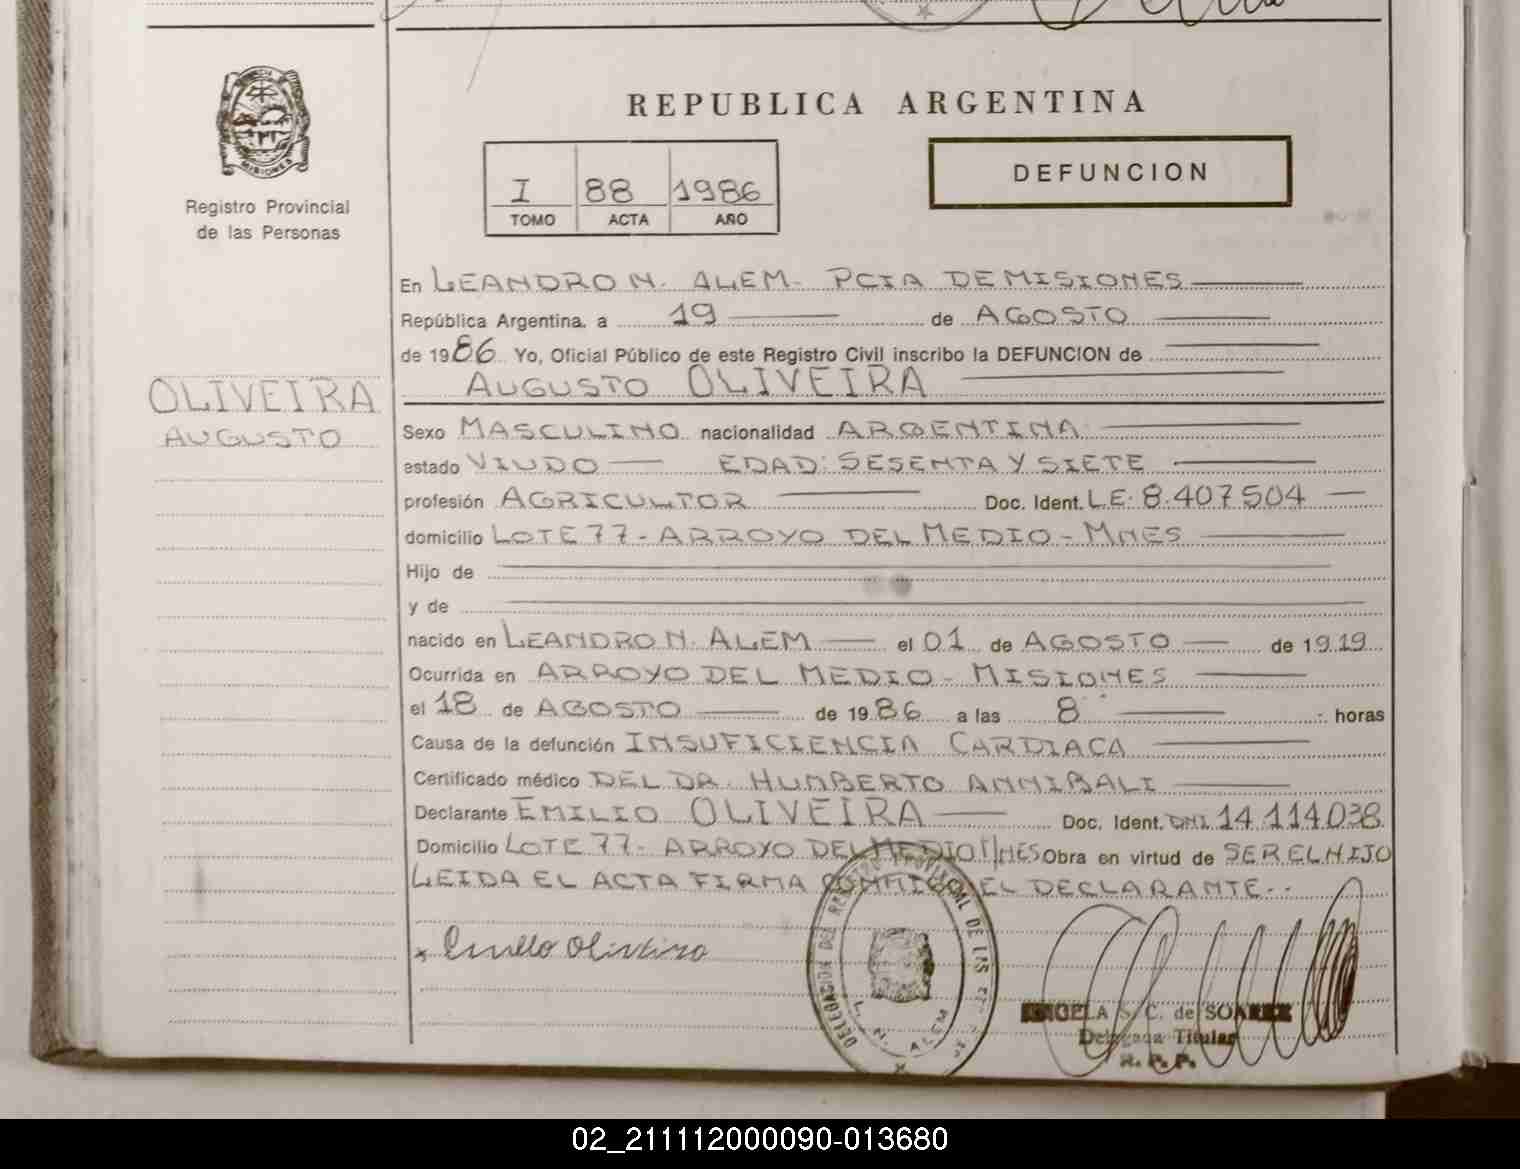 REPUBLICA ARGENTINA
MISIONES
Registro Provincial
de las Personas
I 88 1986
TOMO ACTA AÑO
DEFUNCION
En LEANDRO N. ALEM- PCIA DE MISIONES
República Argentina, a 19 de AGOSTO
de 1986 Yo, Oficial Público de este Registro Civil inscribo la DEFUNCION de
AUGUSTO OLIVEIRA
OLIVEIRA
AUGUSTO
Sexo MASCULINO nacionalidad ARGENTINA
estado VIUDO EDAD: SESENTA Y SIETE
profesión AGRICULTOR Doc. Ident. L.E. 8.407504
domicilio LOTE 77 - ARROYO DEL MEDIO - MNES
Hijo de
y de
nacido en LEANDRO N. ALEM el 01 de AGOSTO de 1919
Ocurrida en ARROYO DEL MEDIO - MISIONES
el 18 de AGOSTO de 1986 a las 8 horas
Causa de la defunción INSUFICIENCIA CARDIACA
Certificado médico DEL DR. HUMBERTO ANNIBALI
Declarante EMILIO OLIVEIRA Doc. Ident. DNI 14.114.038
Domicilio LOTE 77 - ARROYO DEL MEDIO MNES Obra en virtud de SER EL HIJO
LEIDA EL ACTA FIRMA CONMIGO EL DECLARANTE.-
DELEGACION DEL REGISTRO PROVINCIAL DE LAS
L. N. ALEM
x Emilio Oliveira
ANGELA S. C. de SOAREZ
Delegada Titular
R. P. P.
02_211112000090-013680